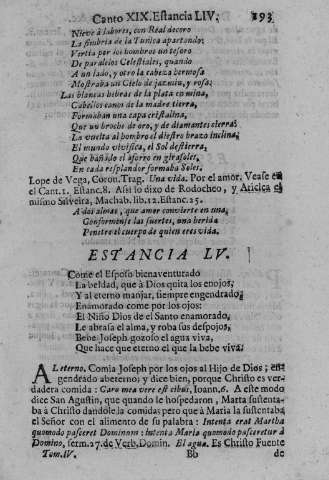 Canto XIX. Estancia LIV. 193
Nieve à labores, con Real decoro
La fimbria de la Tunica apartando;
Vertia por los hombros un tesoro
De paralelos Celestiales, quando
A un lado, y otro la cabeza hermosa
Mostraba un Cielo de jazmin, y rosa:
Las blancas hebras de la plata en mina,
Cabellos canos de la madre tierra,
Formaban una capa cristalina,
Que un broche de oro, y de diamantes cierra
La vuelta al hombro el diestro brazo inclina;
El mundo vivifica, el Sol destierra,
Que bañido el aforro en girasoles,
En cada resplandor formaba Soles.
Lope de Vega, Coron. Trag. Una vida. Por el amor. Vease en
el Cant. 1. Estanc. 8. Assi lo dixo de Rodocheo, y Ariclea el
mismo Silveira, Machab. lib. 12. Estanc. 25.
A dos almas, que amor convierte en una,
Conformense las suertes, una herida
Penetre el cuerpo de quien eres vida.
ESTANCIA LV.
Come el Esposo bienaventurado
La beldad, que à Dios quita los enojos,
Y al eterno manjar, siempre engendrado,
Enamorado come por los ojos:
El Niño Dios de el Santo enamorado,
Le abrasa el alma, y roba sus despojos,
Bebe Joseph gozoso el agua viva,
Que hace que eterno el que la bebe viva.
AL eterno. Comia Joseph por los ojos al Hijo de Dios; en-
gendrado abeterno; y dice bien, porque Christo es ver-
dadera comida: Caro mea vere est cibus, Ioann. 6. A este modo
dice San Agustin, que quando le hospedaron, Marta sustenta-
ba à Christo dandole la comida; pero que à Maria la sustentaba
el Señor con el alimento de su palabra: Intenta erat Martha
quomodo pasceret Dominum: intenta Maria quomodo pasceretur à
Domino, serm. 27. de Verb. Domin. El agua. Es Christo Fuente
Tom. IV. Bb de